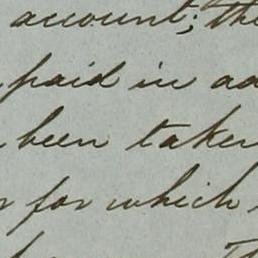 account; the
paid in ad
been taken
for which